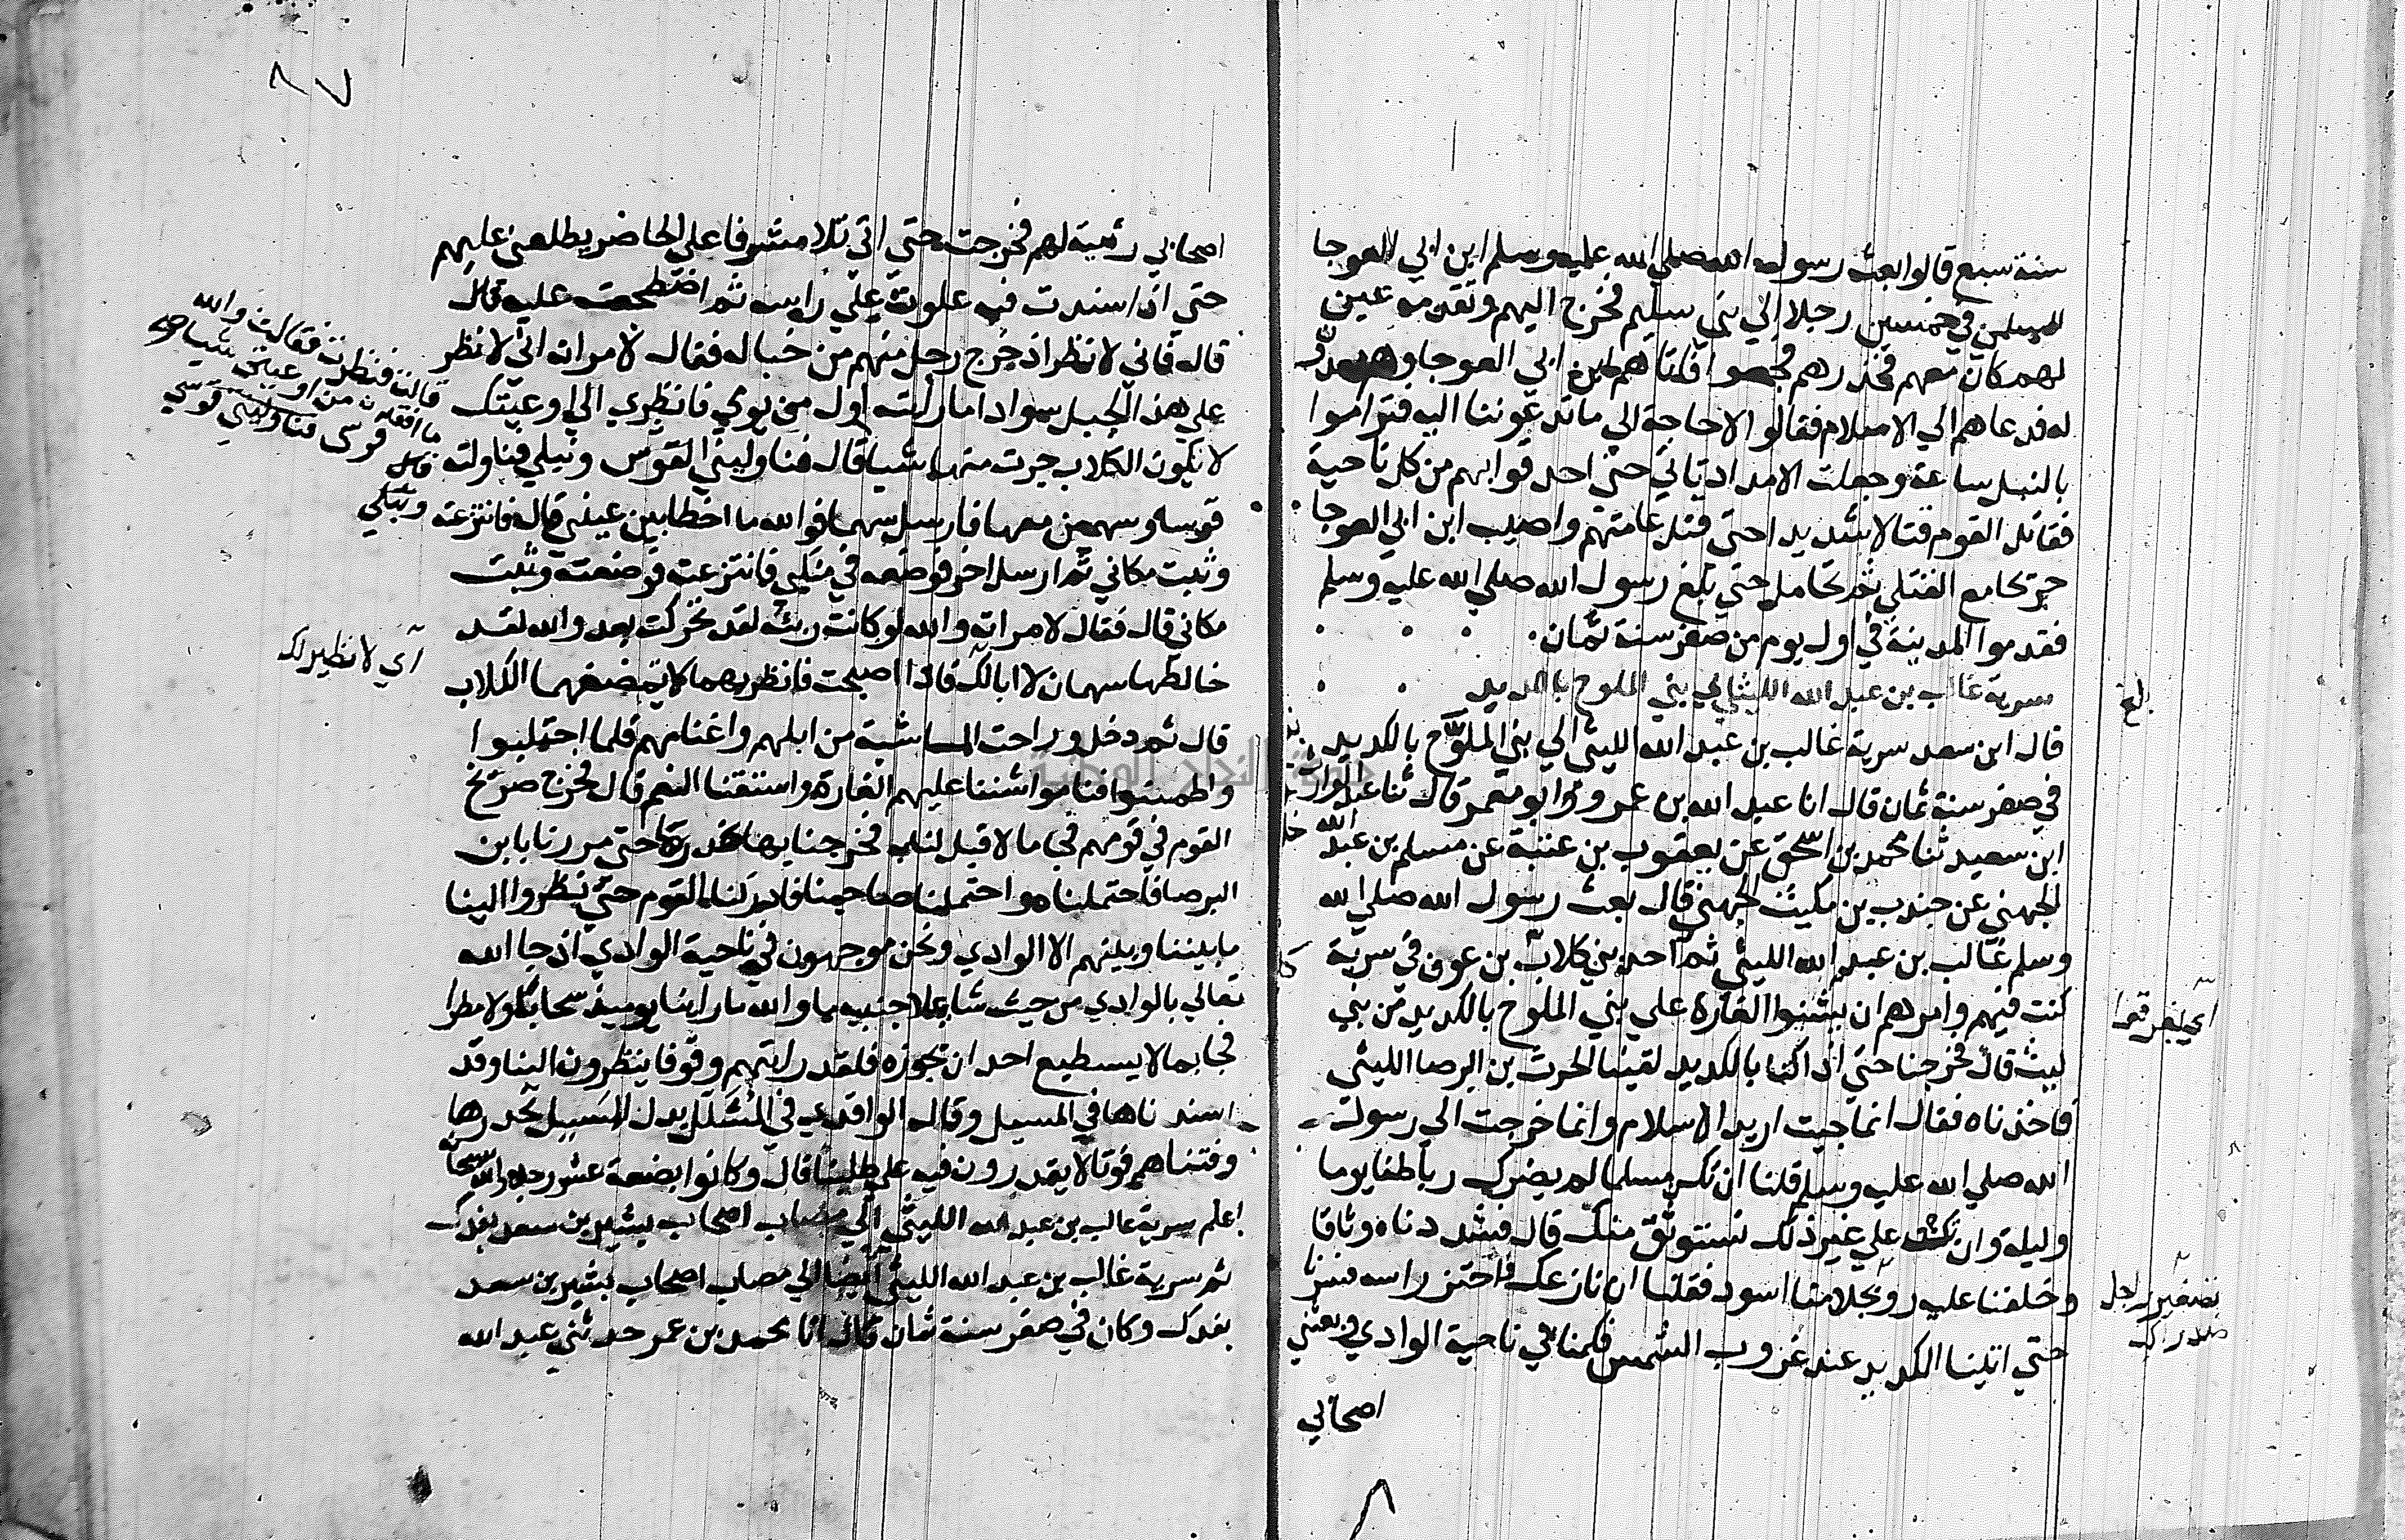 سنة سبع قالوا بعث رسول الله صلي الله عليه وسلم ابن ابي العوجا
المسلمين في خمسين رجلا الي بني سليم فخرج اليهم وتقدمه عين
لهم كان معهم فحذرهم فجمعوا فاتاهم ابن ابي العوجا وهم معدون
له فدعاهم الي الاسلام فقالوا لا حاجة الي ما تدعوننا اليه فتراموا
بالنبل ساعة وجعلت الامداد تاتي حتي احدقوا بهم من كل ناحية
فقاتل القوم قتالا شديدا حتي قتل عامتهم واصيب ابن ابي العوجا
جريحا مع القتلي ثم تحامل حتي بلغ رسول الله صلي الله عليه وسلم
فقدموا المدينة في اول يوم من صفر سنة ثمان
سرية غالب بن عبد الله الليثي الي بني الملوح بالكديد
قال ابن سعد سرية غالب بن عبد الله الليثي الي بني الملوح بالكديد
في صفر سنة ثمان قال انا عبد الله بن عمرو ابو معمر قال ثنا عبد الوارث
ابن سعيد ثنا محمد بن اسحق عن يعقوب بن عتبة عن مسلم بن عبد الله
الجهني عن جندب بن مكيث الجهني قال بعث رسول الله صلي الله
وسلم غالب بن عبد الله الليثي ثم احد بني كلاب بن عوف في سرية
كنت فيهم وامرهم ان يشنوا الغارة علي بني الملوح بالكديد من بني
ليث قال فخرجنا حتي اذا كنا بالكديد لقينا الحرث بن البرصا الليثي
فاخذناه فقال انما جيت اريد الاسلام وانما خرجت الي رسول
الله صلي الله عليه وسلم قلنا ان تكن مسلما لم يضرك رباطنا يوما
وليلة وان تكن علي غير ذلك نستوثق منك قال فشددناه وثاقا
وخلفنا عليه رويجلا منا اسود فقلنا ان نازعك فاحتز راسه فسرنا
حتي اتينا الكديد عند غروب الشمس فكمنا في ناحية الوادي وبعثني
اصحابي
اي يفرقوا
تصغير رجل
٨٧
اصحابي ربيئة لهم فخرجت حتي اتي تلا مشرفا علي الحاضر يطلعني عليهم
حتي اذا اسندت فيه علوت علي راسه ثم اضطجعت عليه قال
قال فاني لانظر اذ خرج رجل منهم من خباله فقال لامراته اني لانظر
علي هذا الجبل سوادا ما رايته اول من يومي فانظري الي اوعيتك
لا تكون الكلاب جرت منها شيا قال فناوليني القوس ونبلي فناولته
قوسه وسهمين معها فارسل سهما فوالله ما اخطا بين عيني قال فانتزعته
وثبت مكاني ثم ارسل اخر فوضعه في منكبي فانتزعته فوضعته وثبت
مكاني قال فقال لامراته والله لو كانت ربيئة لقد تحركت بعد والله لقد
خالطها سهمان لا ابالك فاذا اصبحت فانظريهما لا تمضغهما الكلاب
قال ثم دخل وراحت الماشية من ابلهم واغنامهم فلما احتلبوا
واطمننوا فناموا شننا عليهم الغارة واستقنا النعم قال فخرج صريخ
القوم في قومهم فجا ما لا قبل لنا به فخرجنا بها نحدرها حتي مررنا بابن
البرصا فاحتملناه واحتملنا صاحبنا فادركنا القوم حتي نظروا الينا
ما بيننا وبينهم الا الوادي ونحن موجهون في ناحية الوادي اذ جا الله
تعالي بالوادي من حيث شا يملا جنبيه ما والله ما راينا يوميذ سحابا ولا مطرا
فجا بما لا يستطيع احد ان يجوزه فلقد رايتهم وقوفا ينظرون الينا وقد
اسندناها في المسيل وقال الواقدي في المشلل بدل المسيل نحدرها
وفتناهم فوتا لا يقدرون فيه علي طلبنا قال وكانوا بضعة عشر رجلا والله سبحانه
اعلم سرية غالب بن عبد الله الليثي الي مصاب اصحاب بشير بن سعد بفدك
ثم سرية غالب بن عبد الله الليثي ايضا الي مصاب اصحاب بشير بن سعد
بفدك وكان في صفر سنة ثمان قال انا محمد بن عمر حدثني عبد الله
قالت فنظرت فقالت والله
ما افقد من اوعيتي شيا
قال فناوليني قوسي
ونبلي
اي لا نظير لك